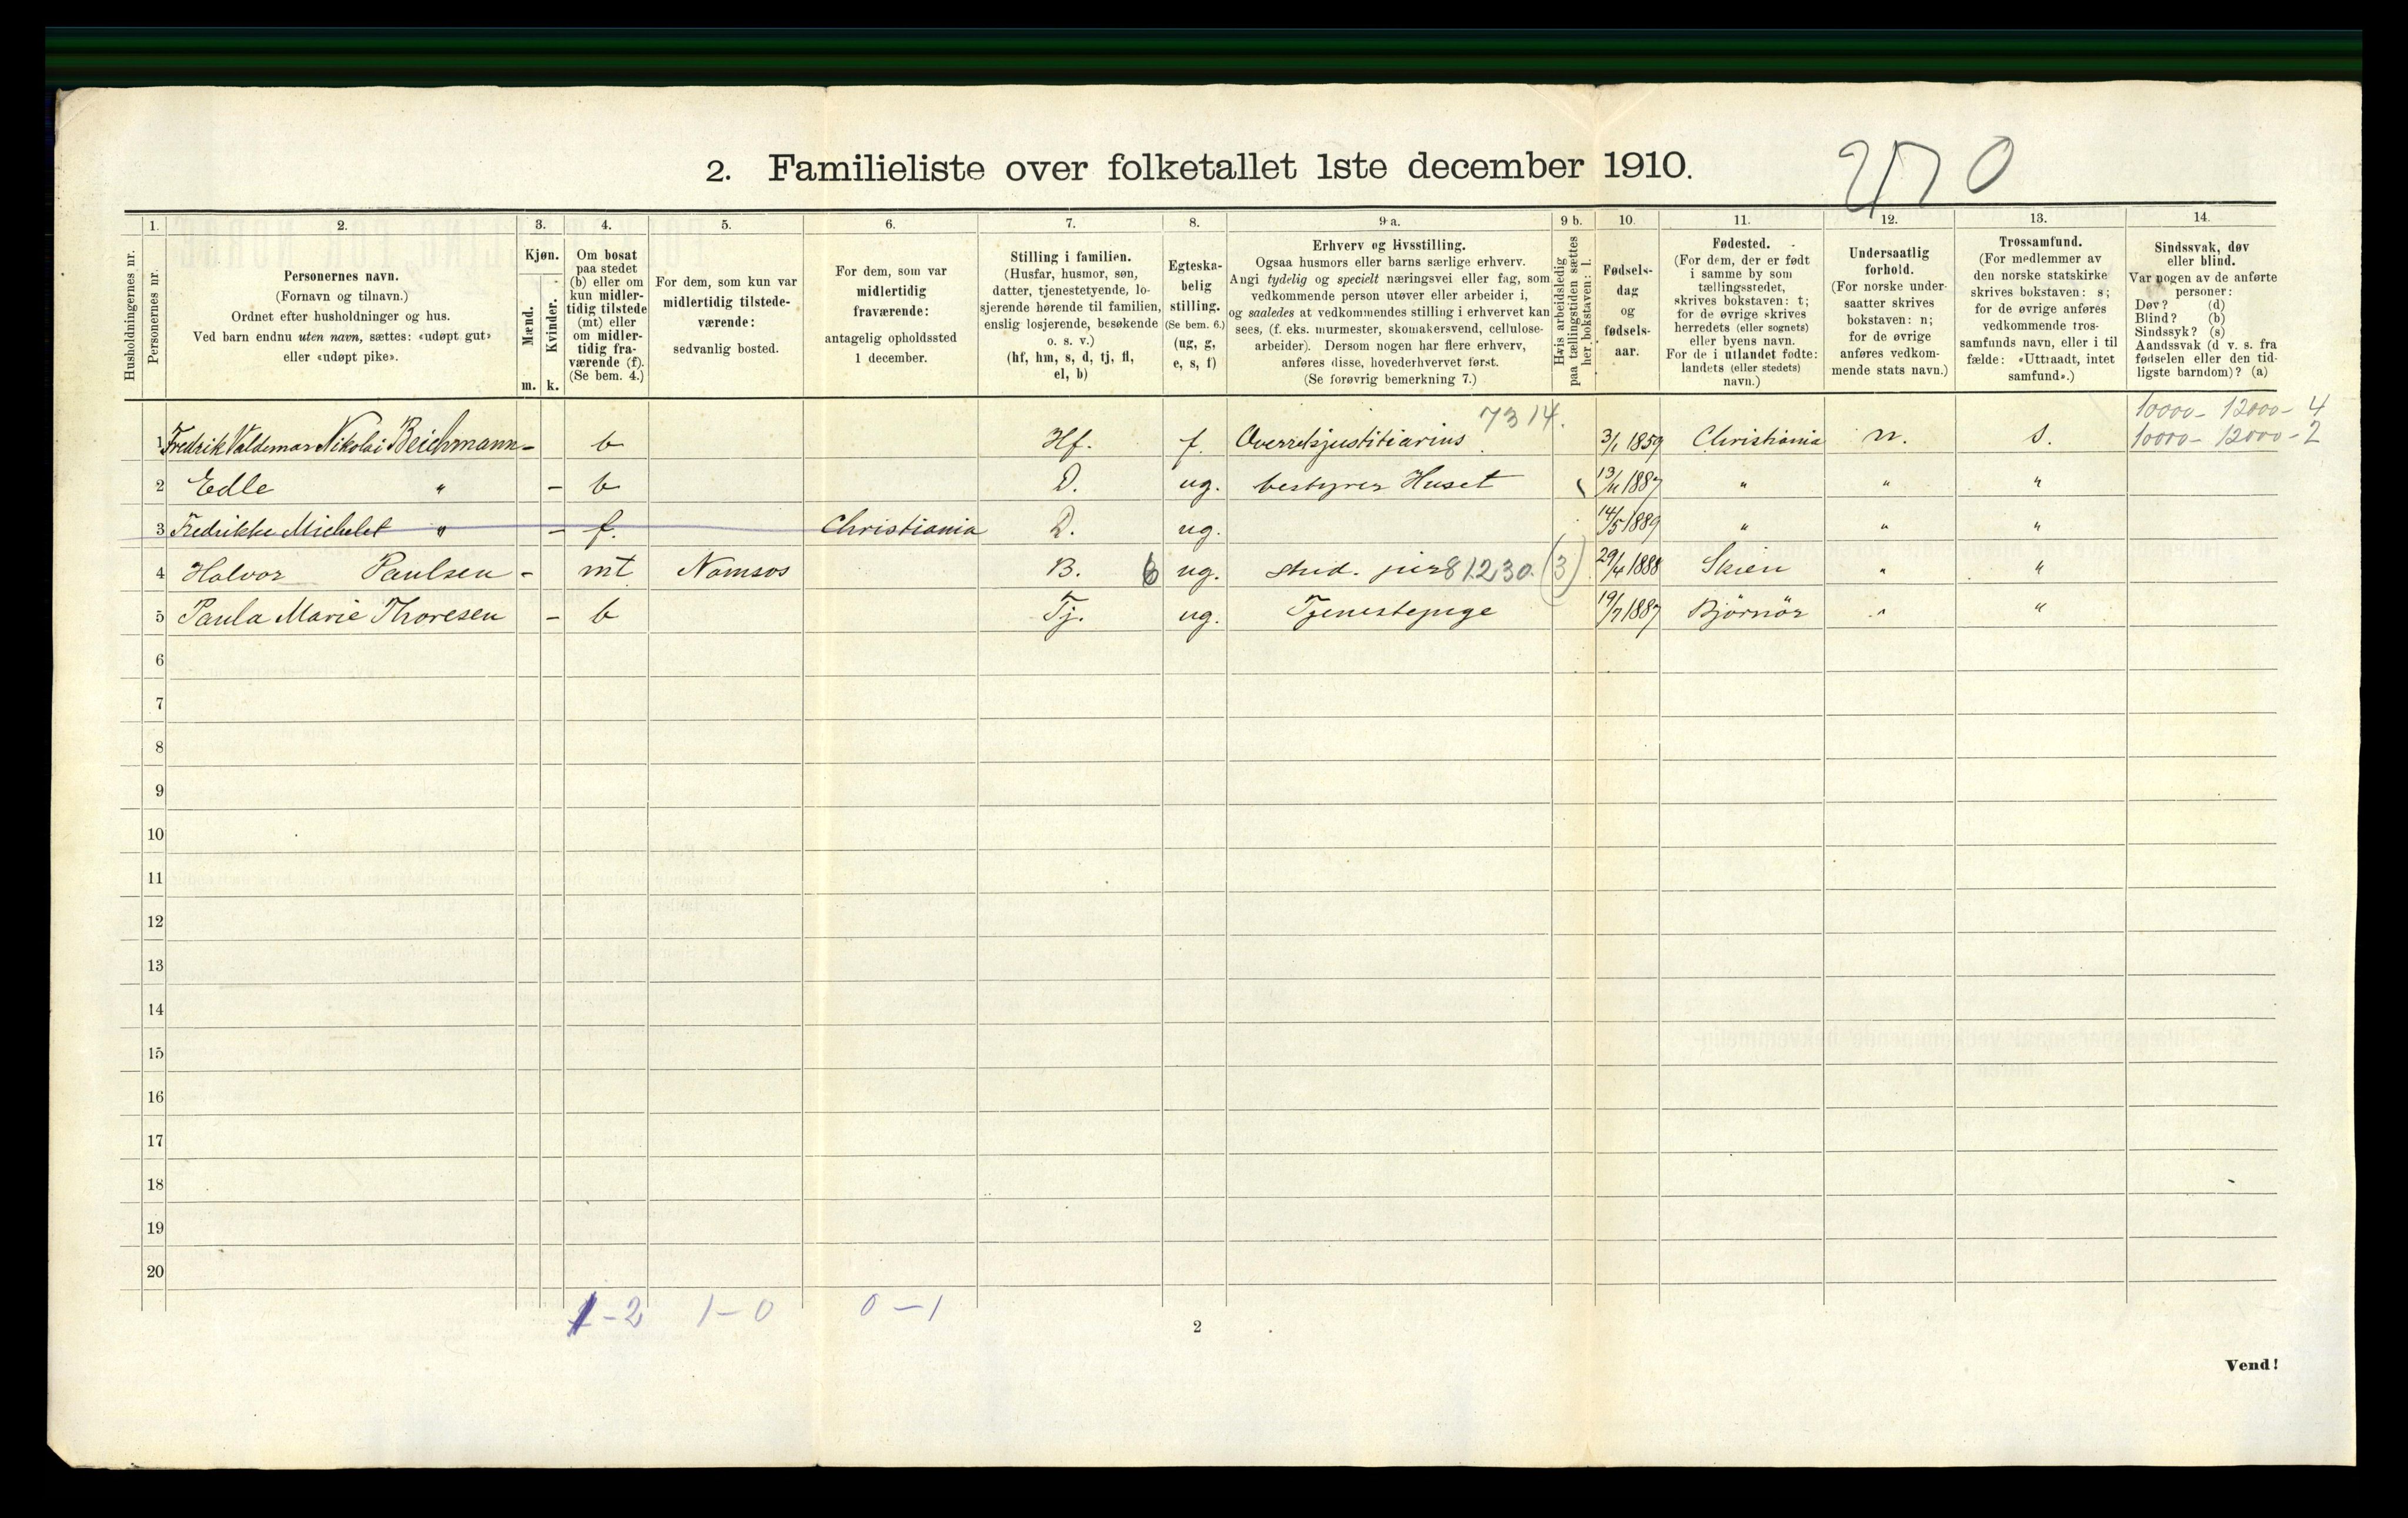 2. Familieliste over folketallet 1ste december 1910.
270
Husholdningernes nr.
1.
Personernes nr.
2.
Personernes navn.
(Fornavn og tilnavn.)
Ordnet efter husholdninger og hus.
Ved barn endnu uten navn, sættes: «udøpt gut»
eller «udøpt pike».
3.
Kjøn.
Mænd.
Kvinder.
m.
k.
4.
Om bosat
paa stedet
(b) eller om
kun midler-
tidig tilstede
(mt) eller
om midler-
tidig fra-
værende (f).
(Se bem. 4.)
5.
For dem, som kun var
midlertidig tilstede-
værende:
sedvanlig bosted.
6.
For dem, som var
midlertidig
fraværende:
antagelig opholdssted
1 december.
7.
Stilling i familien.
(Husfar, husmor, søn,
datter, tjenestetyende, lo-
sjerende hørende til familien,
enslig losjerende, besøkende
o. s. v.)
(hf, hm, s, d, tj, fl,
el, b)
8.
Egteska-
belig
stilling.
(Se bem. 6.)
(ug, g,
e, s, f)
9 a.
Erhverv og livsstilling.
Ogsaa husmors eller barns særlige erhverv.
Angi tydelig og specielt næringsvei eller fag, som
vedkommende person utøver eller arbeider i,
og saaledes at vedkommendes stilling i erhvervet kan
sees, (f. eks. murmester, skomakersvend, cellulose-
arbeider). Dersom nogen har flere erhverv,
anføres disse, hovederhvervet først.
(Se forøvrig bemerkning 7.)
9 b.
Hvis arbeidsledig
paa tællingstiden sættes
her bokstaven: l.
10.
Fødsels-
dag
og
fødsels-
aar.
11.
Fødested.
(For dem, der er født
i samme by som
tællingsstedet,
skrives bokstaven: t;
for de øvrige skrives
herredets (eller sognets)
eller byens navn.
For de i utlandet fødte:
landets (eller stedets)
navn.)
12.
Undersaatlig
forhold.
(For norske under-
saatter skrives
bokstaven: n;
for de øvrige
anføres vedkom-
mende stats navn.)
13.
Trossamfund.
(For medlemmer av
den norske statskirke
skrives bokstaven: s;
for de øvrige anføres
vedkommende tros-
samfunds navn, eller i til
fælde: «Uttraadt, intet
samfund».)
14.
Sindssvak, døv
eller blind.
Var nogen av de anførte
personer:
Døv? (d)
Blind? (b)
Sindssyk? (s)
Aandssvak (d v. s. fra
fødselen eller den tid-
ligste barndom)? (a)
7314.
10000 - 12000 - 4
1 Fredrik Valdemar Nikolai Beichmann - b Hf. f. Overretsjustitiarius 3/1 1859 Christiania n. S. 10000 - 12000 - 2
2 Edle " - b D. ug. bestyrer Huset 13/11 1887 " " "
3 Fredrikke Michelet " - f. Christiania D. ug. 14/5 1889 " " "
4 Halvor Paulsen - mt Namsos B. b ug. stud. jur 81230. (3) 29/4 1888 Skien " "
5 Paula Marie Thoresen - b Tj. ug. Tjenestepige 19/7 1887 Bjørnör " "
6
7
8
9
10
11
12
13
14
15
16
17
18
19
20
1-2 1-0 0-1
2
Vend!